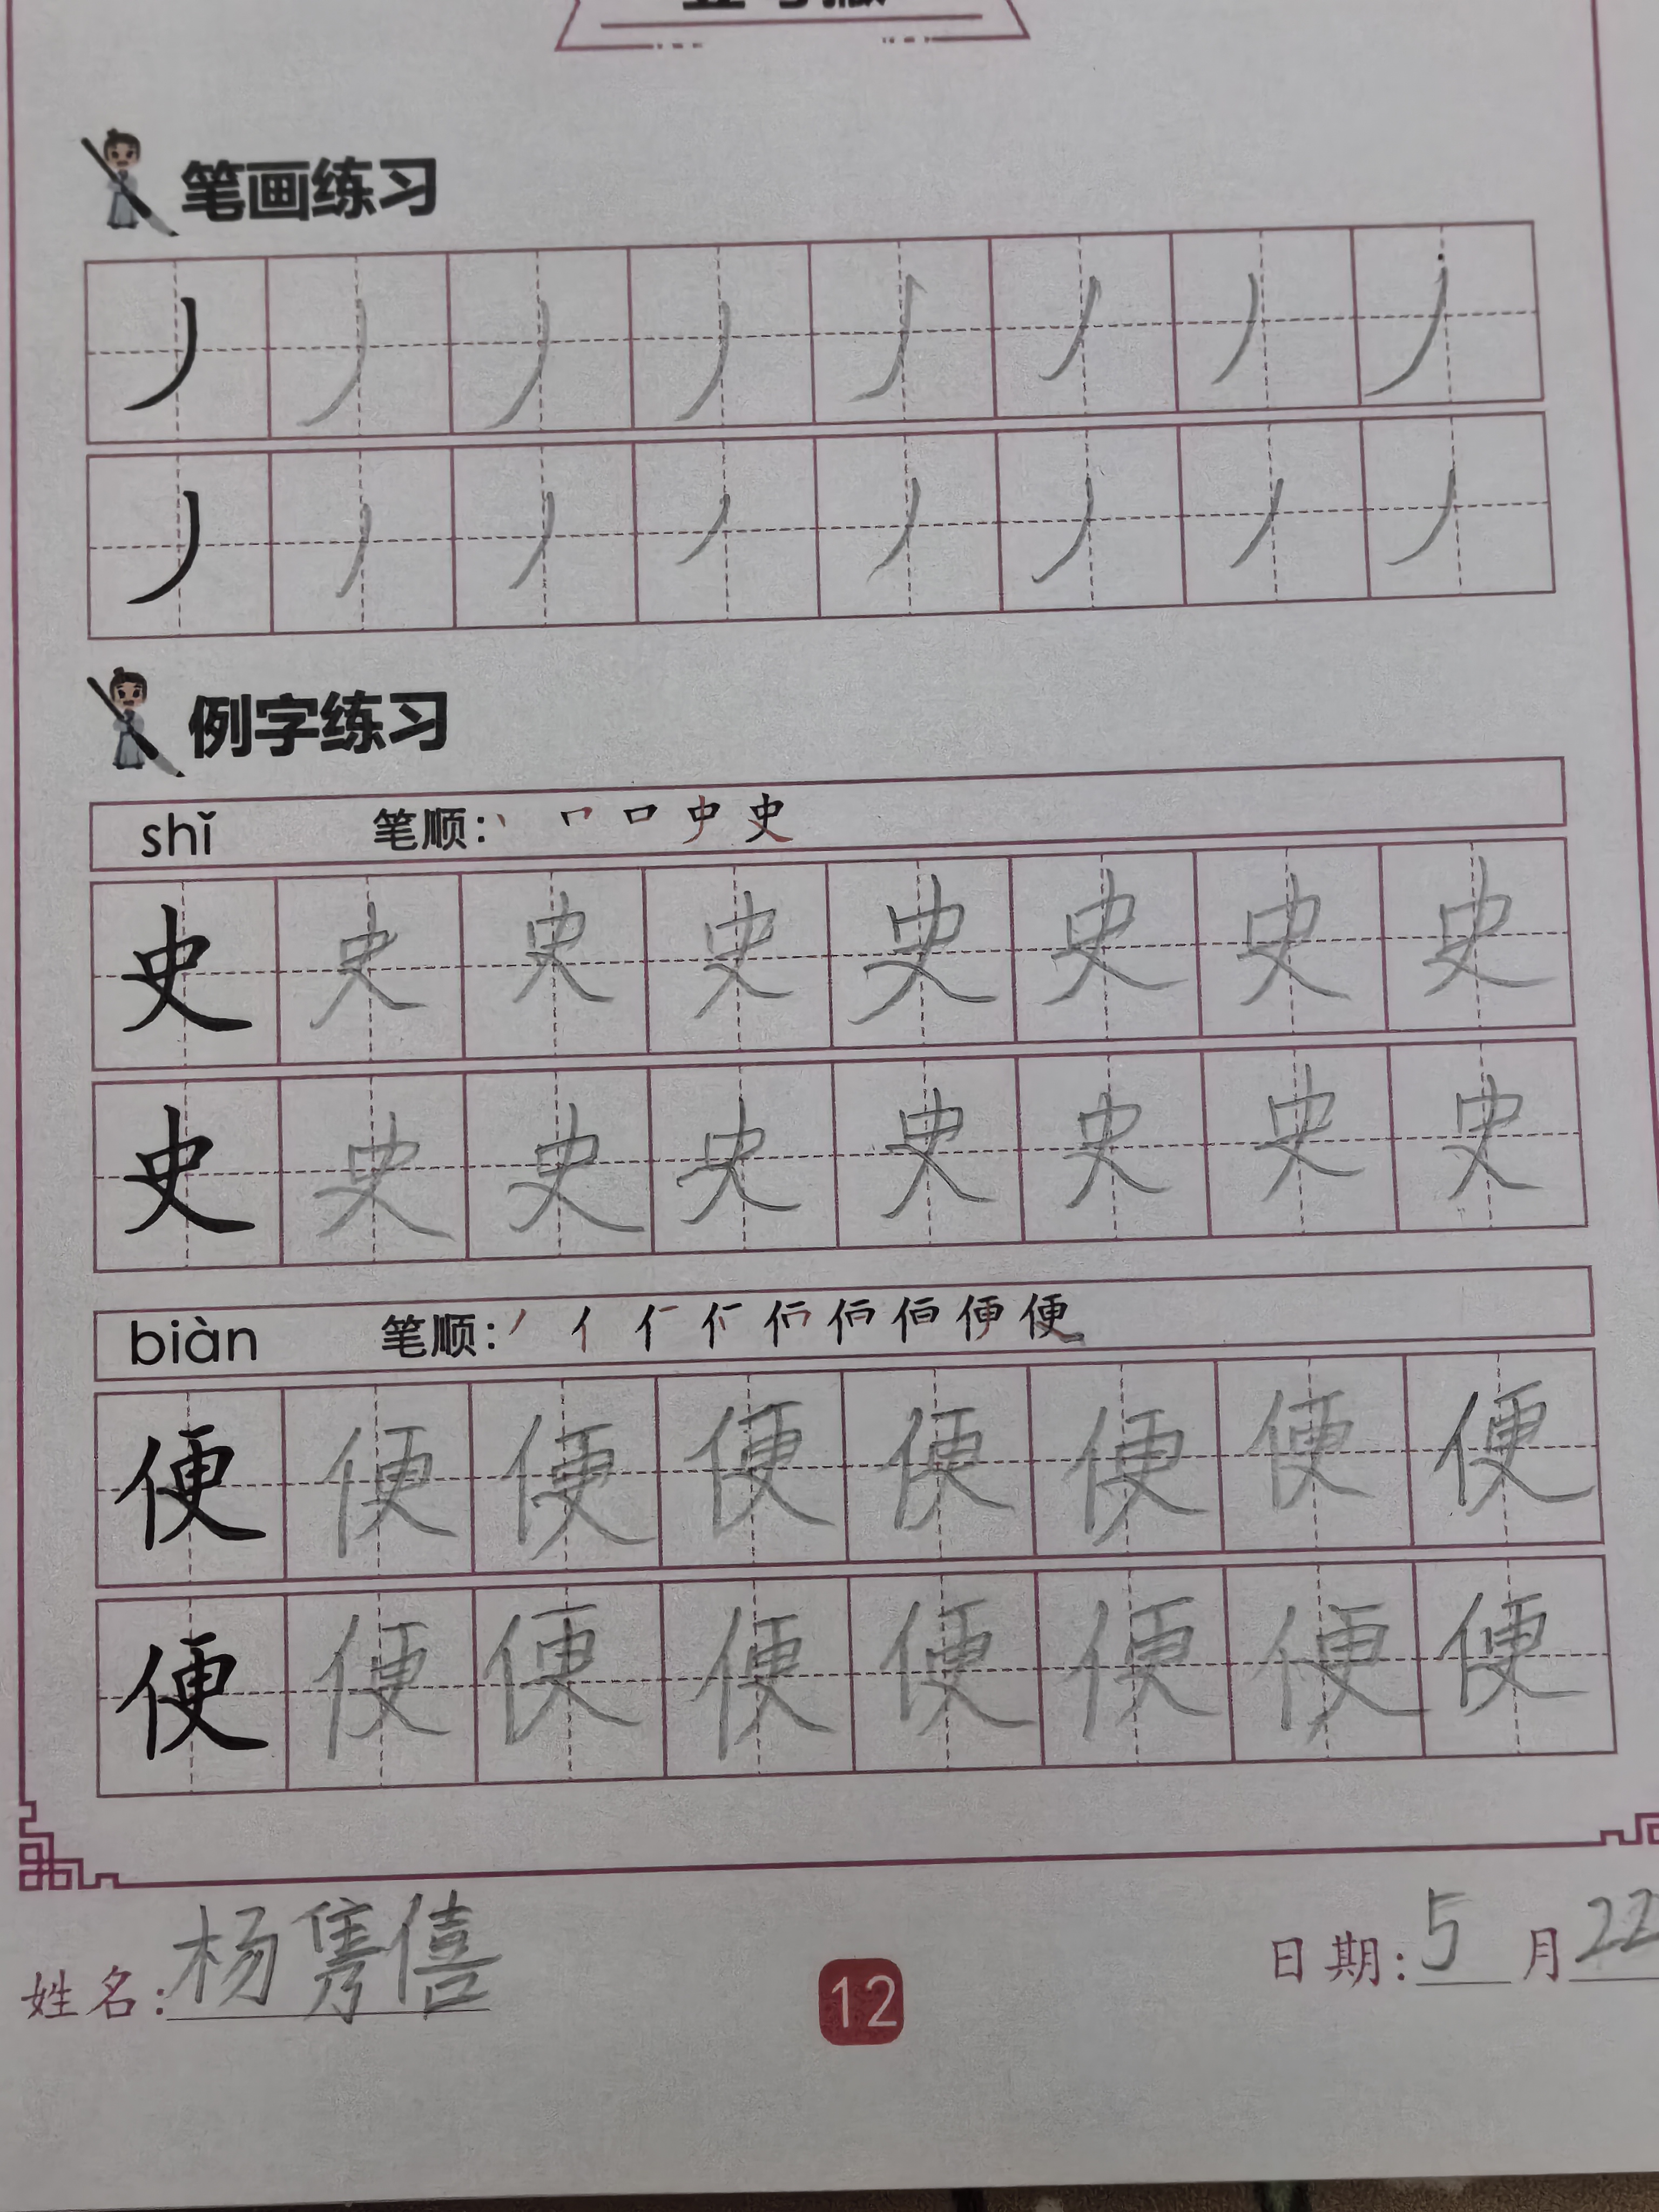 笔画练习
丿 丿 丿 丿 丿 丿 丿 丿
丿 丿 丿 丿 丿 丿 丿 丿
例字练习
shǐ 笔顺:
史 史 史 史 史 史 史 史
史 史 史 史 史 史 史 史
biàn 笔顺:
便 便 便 便 便 便 便 便
便 便 便 便 便 便 便 便
姓名:杨隽僖 12 日期:5月22